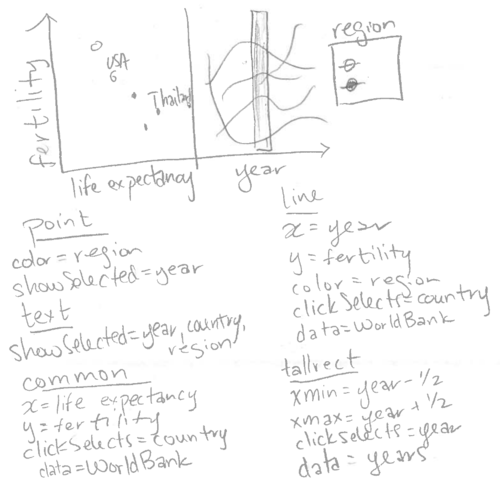 fertility
USA
Thailand
life expectancy
year
region
point
color = region
showSelected = year
text
showSelected = year, country,
region
common
x = life expectancy
y = fertility
clickSelects = country
data = WorldBank
line
x = year
y = fertility
color = region
clickSelects = country
data = WorldBank
tallrect
xmin = year - 1/2
xmax = year + 1/2
clickSelects = year
data = years